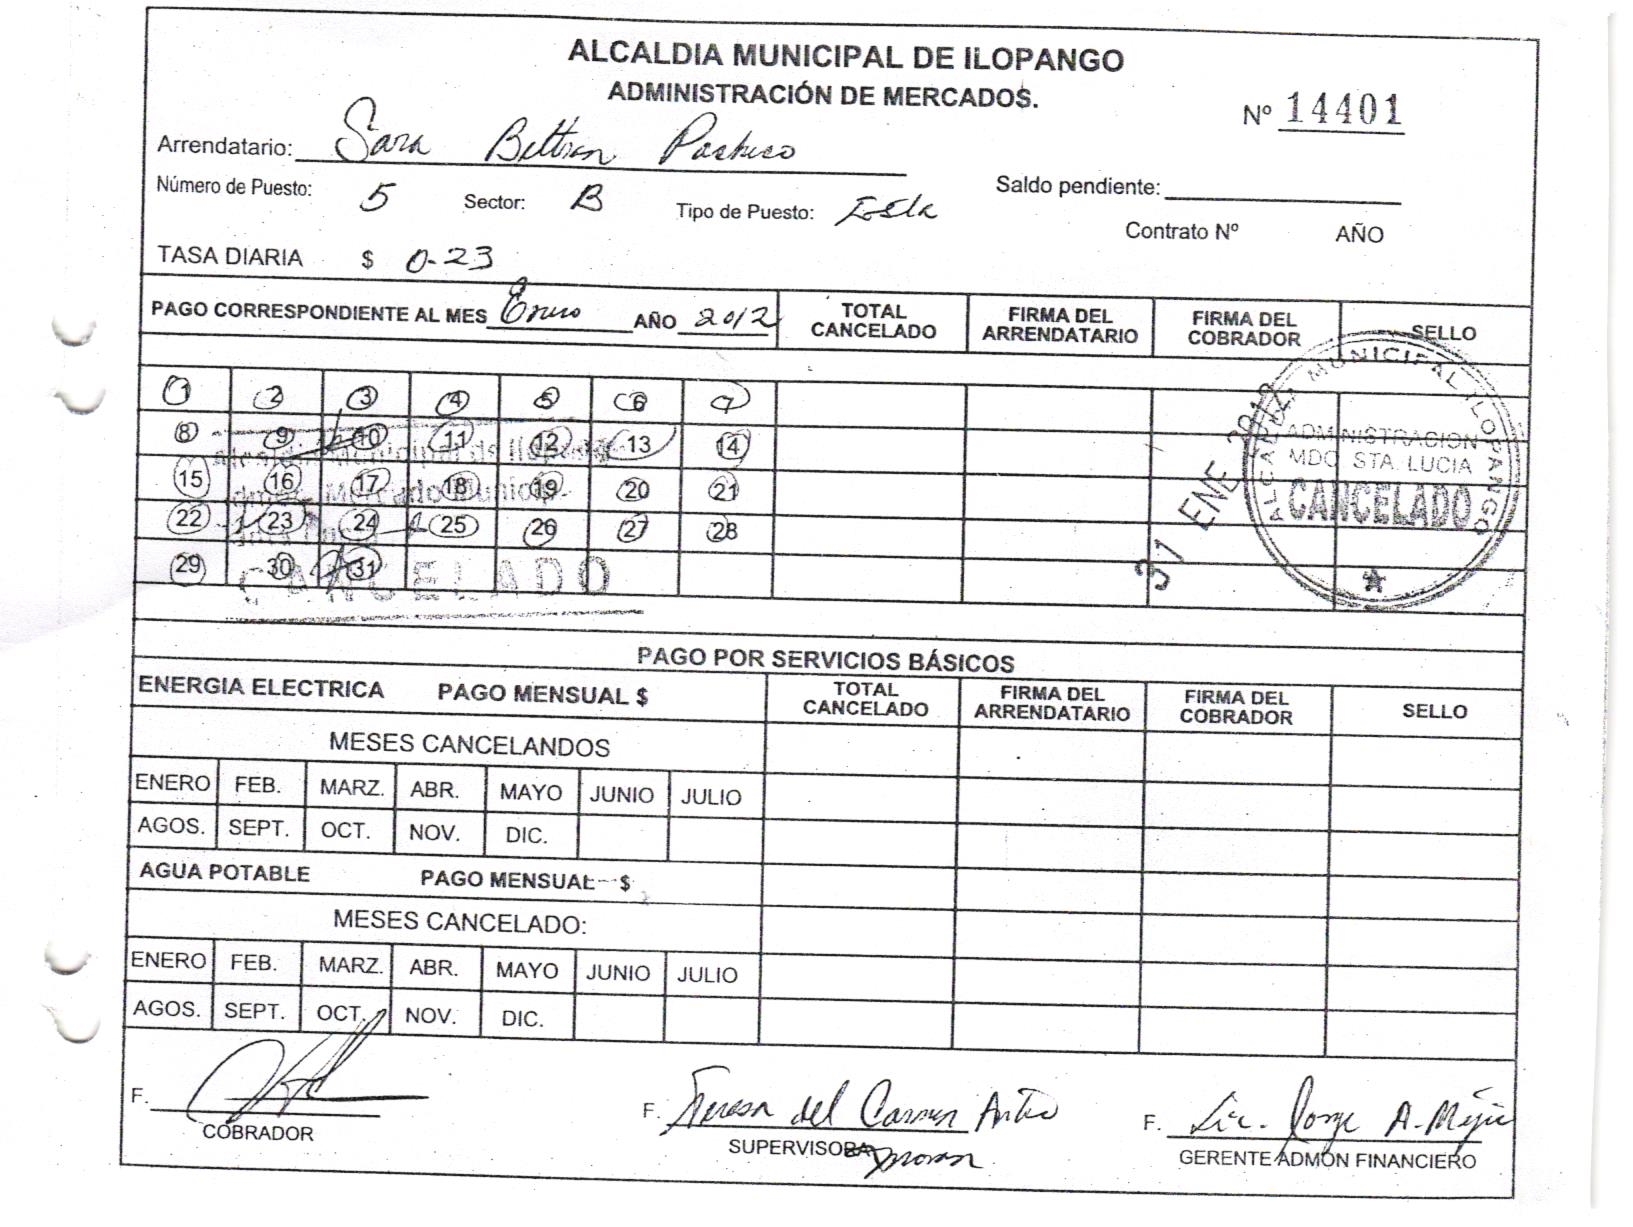 ALCALDIA MUNICIPAL DE ILOPANGO
ADMINISTRACIÓN DE MERCADOS.
Nº 14401
Arrendatario: Sara Beltran Pacheco
Saldo pendiente:
Número de Puesto: 5 Sector: B Tipo de Puesto: Isla
Contrato Nº AÑO
TASA DIARIA $ 0-23
PAGO CORRESPONDIENTE AL MES Enero AÑO 2012 TOTAL CANCELADO FIRMA DEL ARRENDATARIO FIRMA DEL COBRADOR SELLO
1 2 3 4 5 6 7
8 9 10 11 12 13 14
15 16 17 18 19 20 21
22 23 24 25 26 27 28
29 30 31
CANCELADO
31 ENE 2012
ALCALDIA MUNICIPAL ILOPANGO
ADMINISTRACION
MDO STA. LUCIA
CANCELADO
PAGO POR SERVICIOS BÁSICOS
ENERGIA ELECTRICA PAGO MENSUAL $ TOTAL CANCELADO FIRMA DEL ARRENDATARIO FIRMA DEL COBRADOR SELLO
MESES CANCELANDOS
ENERO FEB. MARZ. ABR. MAYO JUNIO JULIO
AGOS. SEPT. OCT. NOV. DIC.
AGUA POTABLE PAGO MENSUAL $
MESES CANCELADO:
ENERO FEB. MARZ. ABR. MAYO JUNIO JULIO
AGOS. SEPT. OCT. NOV. DIC.
F. F. Teresa del Carmen F. Lic. Jorge A. Mejia
COBRADOR SUPERVISORA Moran GERENTE ADMÓN FINANCIERO